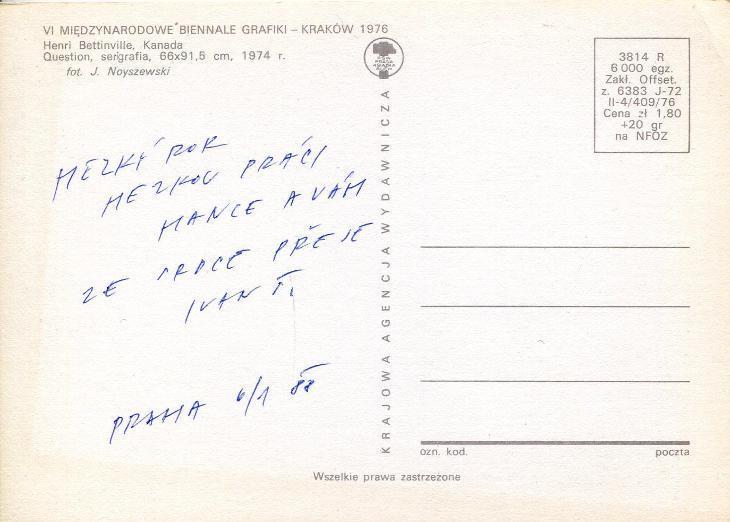 VI MIĘDZYNARODOWE BIENNALE GRAFIKI – KRAKÓW 1976
Henri Bettinville, Kanada
Question, serigrafia, 66x91,5 cm, 1974 r.
fot. J. Noyszewski
3814 R
6 000 egz.
Zakł. Offset.
z. 6383 J-72
II-4/409/76
Cena zł 1,80
+20 gr
na NFOZ
KRAJOWA AGENCJA WYDAWNICZA
HEZKÝ ROK
HEZKOU PRÁCI
HANCE A VÁM
ZE SRDCE PŘEJE
IVAN
PRAHA 6/1 88
ozn. kod.
poczta
Wszelkie prawa zastrzeżone